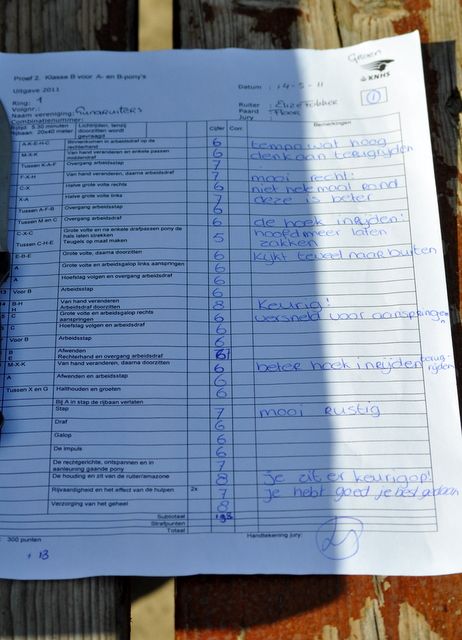 Groen
KNHS
Proef 2. Klasse B voor A- en B-pony's
Uitgave 2011
Datum : 14-5-11
Ring: 1
Voignr.:
Naam vereniging:
Combinatienummer:
Ruiter :
Paard : Floor
Jury :
1
Rijtijd 5.30 minuten
Rijbaan: 20x40 meter
Lichtrijden, tenzij doorzitten wordt gevraagd
Cijfer Corr. Bemerkingen
A-K-E-H-C Binnenkomen in arbeidsdraf op de rechterhand 6 tempo wat hoog
M-X-K Van hand veranderen en enkele passen middendraf 6 denk aan terugrijden
Tussen K-A-F Overgang arbeidsstap 7
F-X-H Van hand veranderen, daarna arbeidsdraf 7 mooi recht!
C-X Halve grote volte rechts 6 niet helemaal rond
X-A Halve grote volte links 7 deze is beter
Tussen A-F-B Overgang arbeidsstap 6
Tussen M en C Overgang arbeidsdraf 6 de hoek inrijden!
C-X-C Grote volte en na enkele drafpassen pony de hals laten strekken 6 hoofd meer laten
Tussen C-H-E Teugels op maat maken 5 zakken
E-B-E Grote volte, daarna doorzitten 6 kijkt teveel naar buiten
A Grote volte en arbeidsgalop links aanspringen 6
A Hoefslag volgen en overgang arbeidsdraf 6
13 Voor B Arbeidsstap 6
14 B-H Van hand veranderen
H Arbeidsdraf doorzitten 8 keurig!
C Grote volte en arbeidsgalop rechts aanspringen 6 versneld voor aanspringen
C Hoefslag volgen en overgang arbeidsdraf 6
Voor B Arbeidsstap 6
B Afwenden
E Rechterhand en overgang arbeidsdraf 6
M-X-K Van hand veranderen, daarna doorzitten 6 beter hoek inrijden terug-
rijden
A Afwenden en arbeidsstap 6
Tussen X en G Halthouden en groeten 6
Bij A in stap de rijbaan verlaten
Stap 7 mooi rustig
Draf 6
Galop 6
De impuls 6
De rechtgerichte, ontspannen en in aanleuning gaande pony 7
De houding en zit van de ruiter/amazone 8 je zit er keurig op!
Rijvaardigheid en het effect van de hulpen 2x 7 je hebt goed je best gedaan
Verzorging van het geheel 8
Subtotaal 193
Strafpunten
Totaal
: 300 punten
Handtekening jury:
+ 13